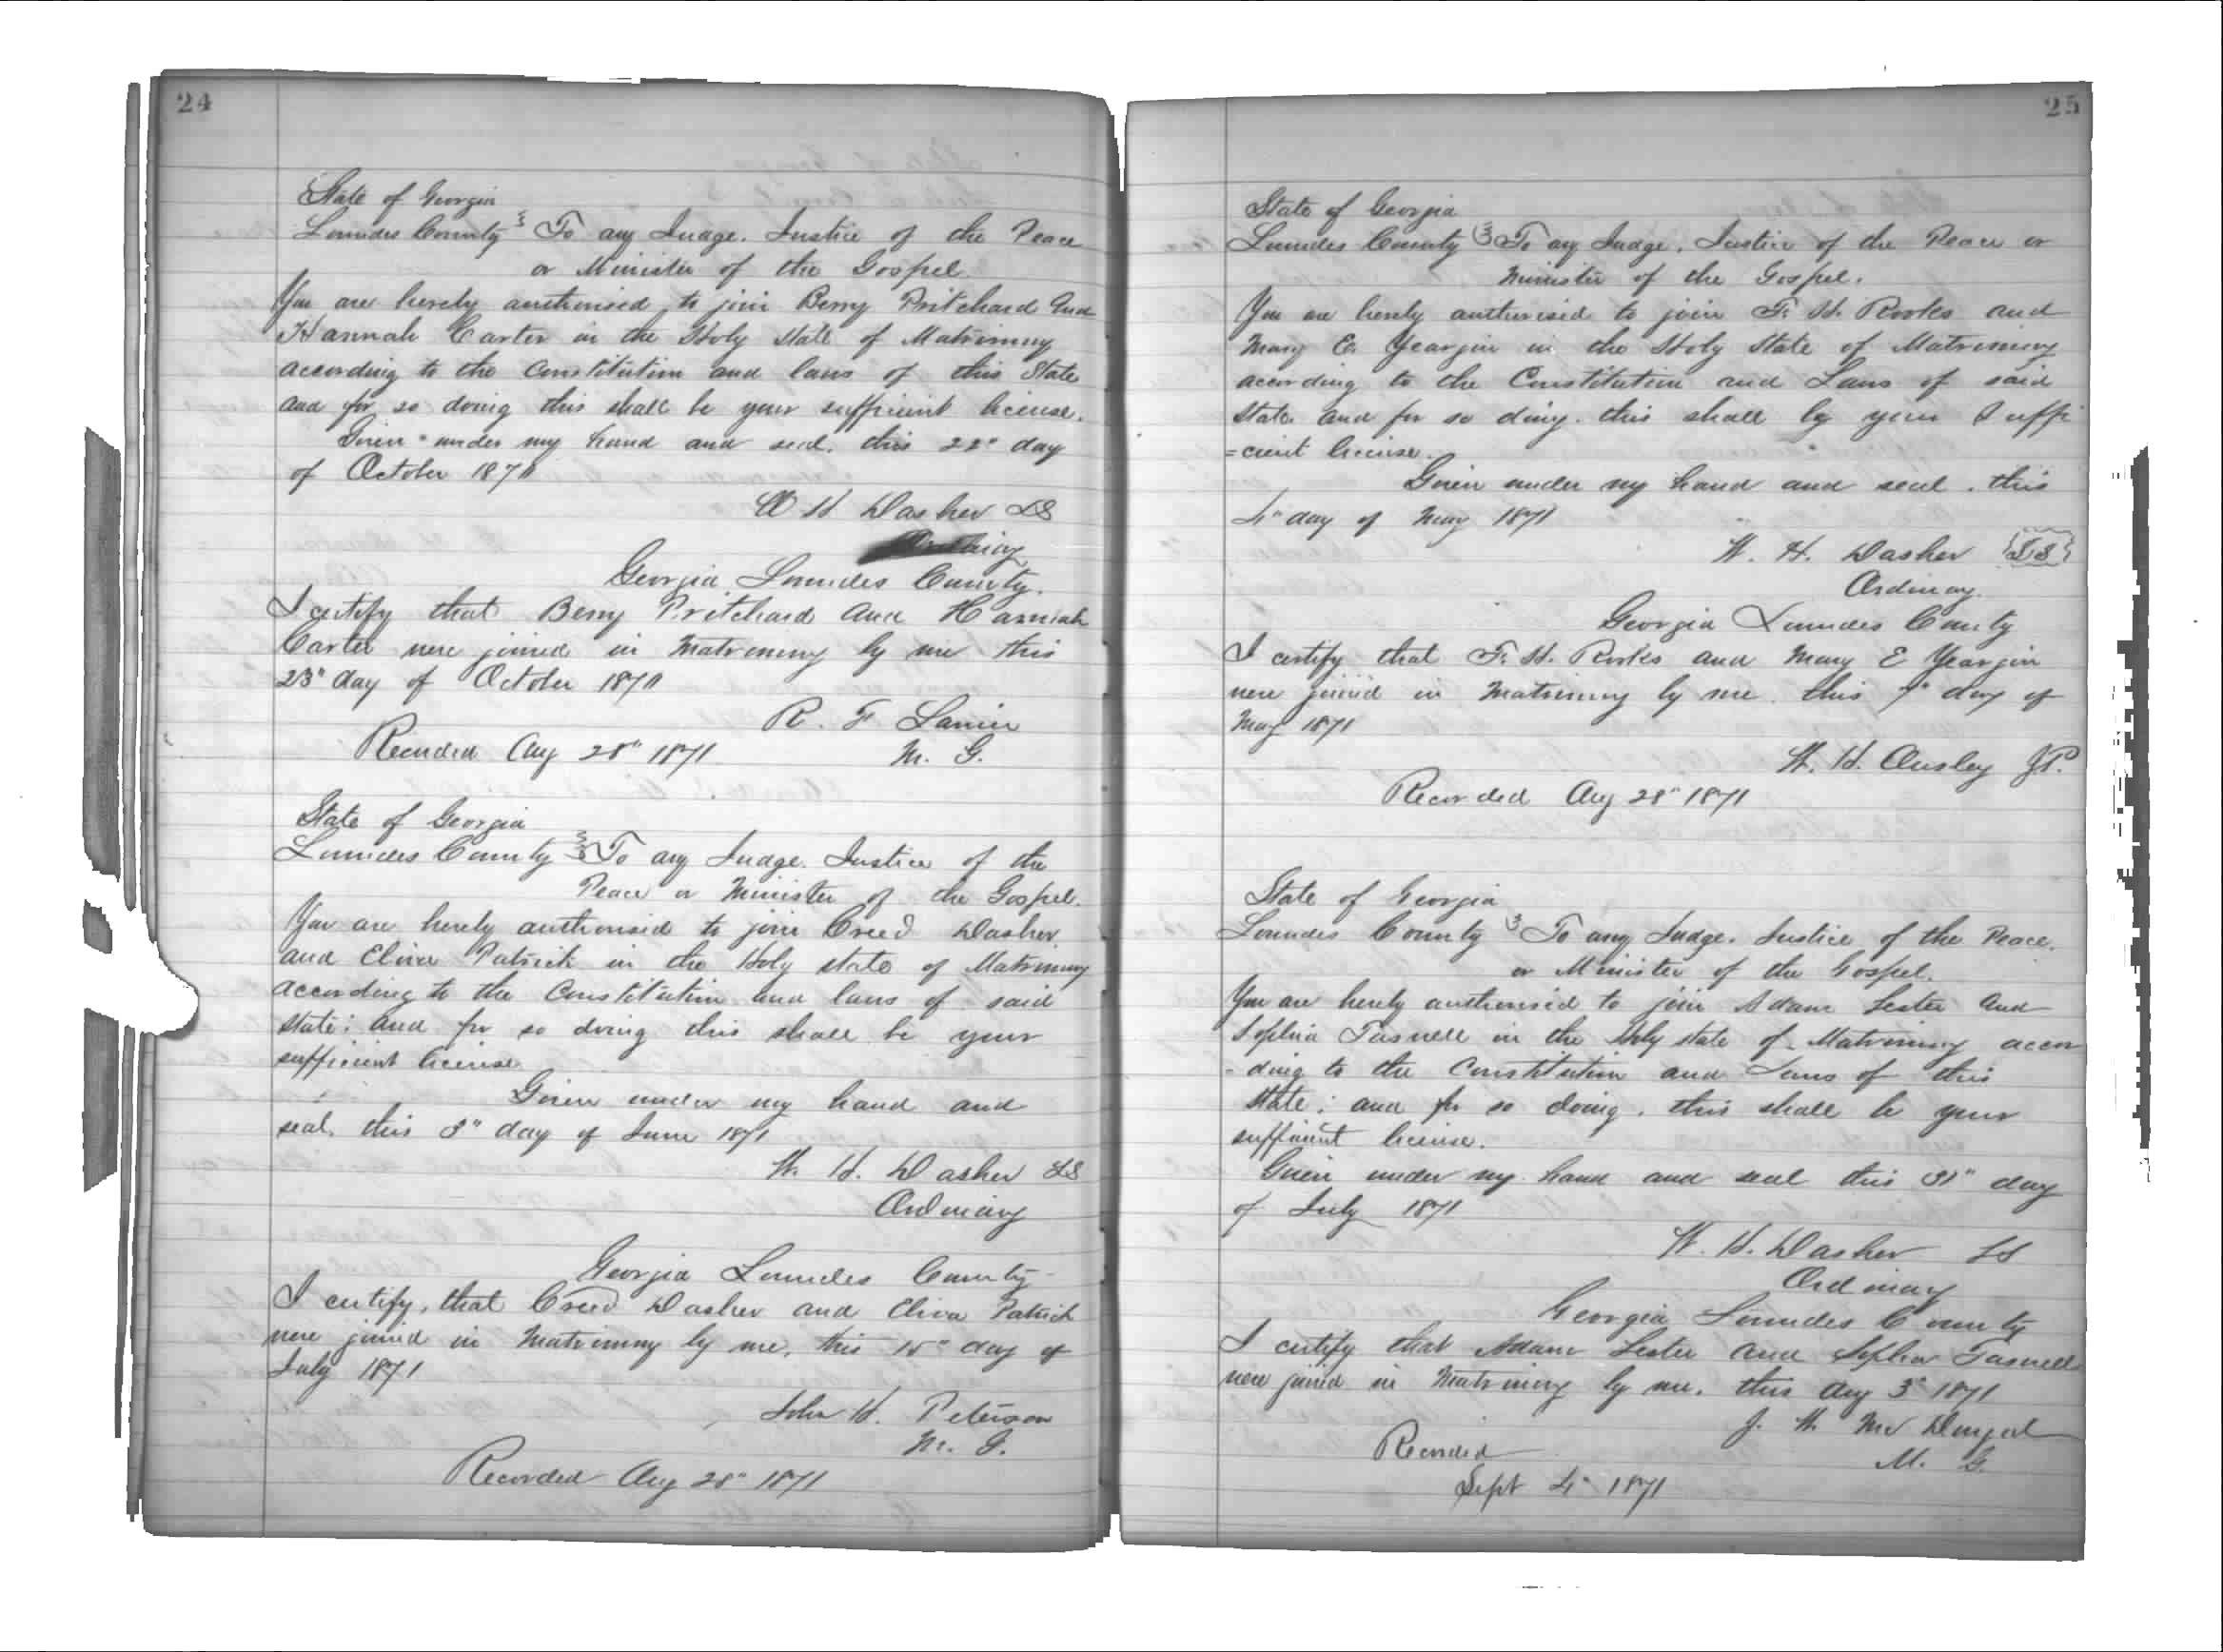 24
State of Georgia
Lowndes County To any Judge. Justice of the Peace
or Minister of the Gospel.
You are hereby authorised to join Berry Pritchard and
Hannah Carter in the Holy State of Matrimony
according to the Constitution and laws of this State
and for so doing this shall be your sufficient license.
Given under my hand and seal. this 22" day
of October 1870
W H Dasher LS
Ordinary
Georgia Lowndes County.
I certify that Berry Pritchard and Hannah
Carter were joined in Matrimony by me this
23" day of October 1870
R. F Lanier
M. G.
Recorded Aug 28" 1871
State of Georgia
Lowndes County To any Judge. Justice of the
Peace or Minister of the Gospel.
You are hereby authorised to join Creed Dasher
and Elivra Patrick in the Holy state of Matrimony
according to the Constitution and laws of said
state: and for so doing this shall be your
sufficient license
Given under my hand and
seal. this 3" day of June 1871
W. H. Dasher LS
Ordinary
Georgia Lowndes County
I certify, that Creed Dasher and Patrick
were joined in Matrimony by me, this 15" day of
July 1871
John H. Peterson
M. G.
Recorded Aug 28" 1871
25
State of Georgia
Lowndes County To any Judge. Justice of the Peace or
Minister of the Gospel.
You are hereby authorised to join F. H. Rooks and
Mary E. Yeargin in the Holy State of Matrimony
according to the Constitution and Laws of said
State and for so doing. this shall by your Suffi
=cient license.
Given under my hand and seal. this
4" day of May 1871
W. H. Dasher LS
Ordinary.
Georgia Lowndes County
I certify that F. H. Rooks and Mary E Yeargin
were joined in Matrimony by me. this 7" day of
May 1871
W. H. Ousley JP.
Recorded Aug 28" 1871
State of Georgia
Lowndes County To any Judge. Justice of the Peace.
or Minister of the Gospel.
You are hereby authorised to join Adam Lester and
Sophia Tasnell in the Holy state of Matrimony accor
-ding to the Constitution and Laws of this
state; and for so doing. this shall be your
sufficient license.
Given under my hand and seal this 31" day
of July 1871
W. H. Dasher LS
Ordinary
Georgia Lowndes County
I certify that Adam Lester and Sophia Tasnell
were joined in Matrimony by me. this Aug 3" 1871
J. W. Mc
M. G.
Recorded
Sept 4" 1871